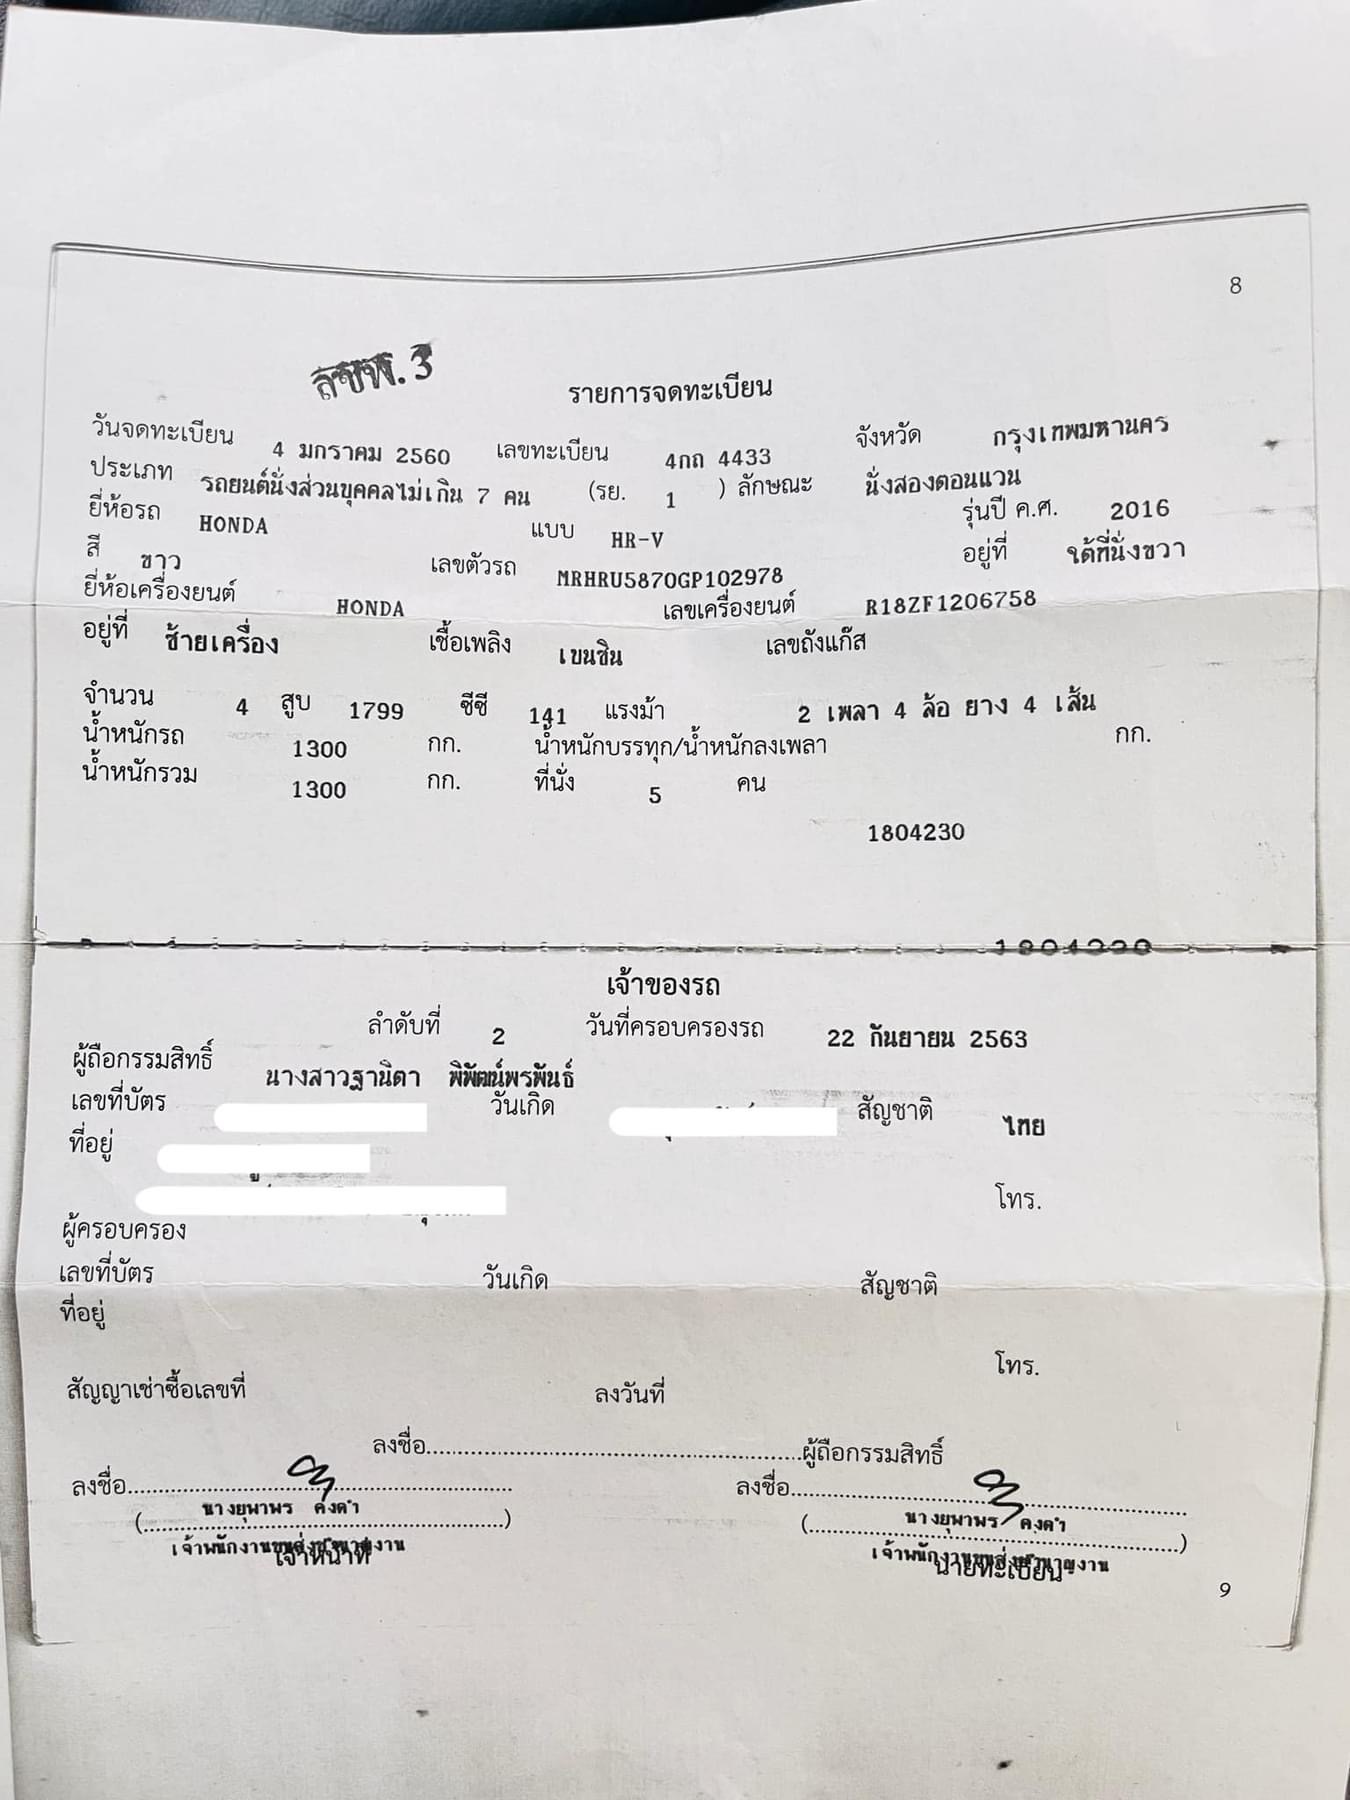 8
ลขพ. 3
รายการจดทะเบียน
วันจดทะเบียน 4 มกราคม 2560 เลขทะเบียน 4กถ 4433 จังหวัด กรุงเทพมหานคร
ประเภท รถยนต์นั่งส่วนบุคคลไม่เกิน 7 คน (รย. 1 ) ลักษณะ นั่งสองตอนแวน
ยี่ห้อรถ HONDA แบบ HR-V รุ่นปี ค.ศ. 2016
สี ขาว เลขตัวรถ MRHRU5870GP102978 อยู่ที่ ใต้ที่นั่งขวา
ยี่ห้อเครื่องยนต์ HONDA เลขเครื่องยนต์ R18ZF1206758
อยู่ที่ ซ้ายเครื่อง เชื้อเพลิง เบนซิน เลขถังแก๊ส
จำนวน 4 สูบ 1799 ซีซี 141 แรงม้า 2 เพลา 4 ล้อ ยาง 4 เส้น
น้ำหนักรถ 1300 กก. น้ำหนักบรรทุก/น้ำหนักลงเพลา กก.
น้ำหนักรวม 1300 กก. ที่นั่ง 5 คน
1804230
1804230
เจ้าของรถ
ลำดับที่ 2 วันที่ครอบครองรถ 22 กันยายน 2563
ผู้ถือกรรมสิทธิ์ นางสาวฐานิตา พิพัฒน์พรพันธ์
เลขที่บัตร วันเกิด สัญชาติ ไทย
ที่อยู่
โทร.
ผู้ครอบครอง
เลขที่บัตร วันเกิด สัญชาติ
ที่อยู่
โทร.
สัญญาเช่าซื้อเลขที่ ลงวันที่
ลงชื่อ..........ผู้ถือกรรมสิทธิ์
ลงชื่อ.......... ลงชื่อ..........
(นางยุพาพร คงดำ) (นางยุพาพร คงดำ)
เจ้าพนักงานขนส่งชำนาญงาน เจ้าพนักงานขนส่งชำนาญงาน
เจ้าหน้าที่ นายทะเบียน
9